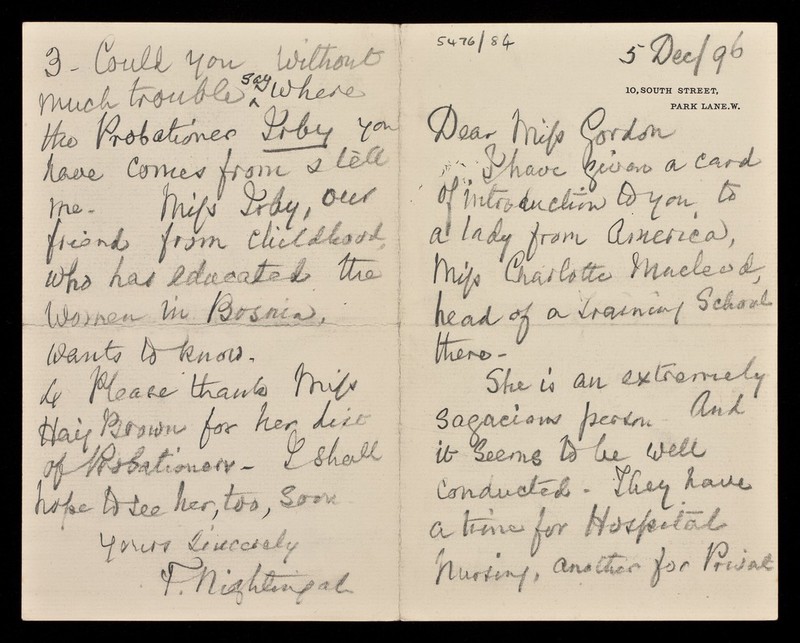 5476/84
5 Dec/96
10, SOUTH STREET,
PARK LANE. W.
Dear Miss Gordon
I have given a card
of introduction to you to
a lady from America,
Miss Charlotte Macleod,
head of a Training School
there -
She is an extremely
sagacious person And
it seems to be well
conducted - They have
a time for Hospital
Nursing, another for Private
3 - Could you without
much trouble say where
the Probationer Irby you
have comes from & tell
me - Miss Irby, our
friend from childhood,
who has educated the
Women in Bosnia,
wants to know -
4 Please thank Miss
Haig Brown for her list
of Probationers - I shall
hope to see her, too, soon
Yours sincerely
F. Nightingale